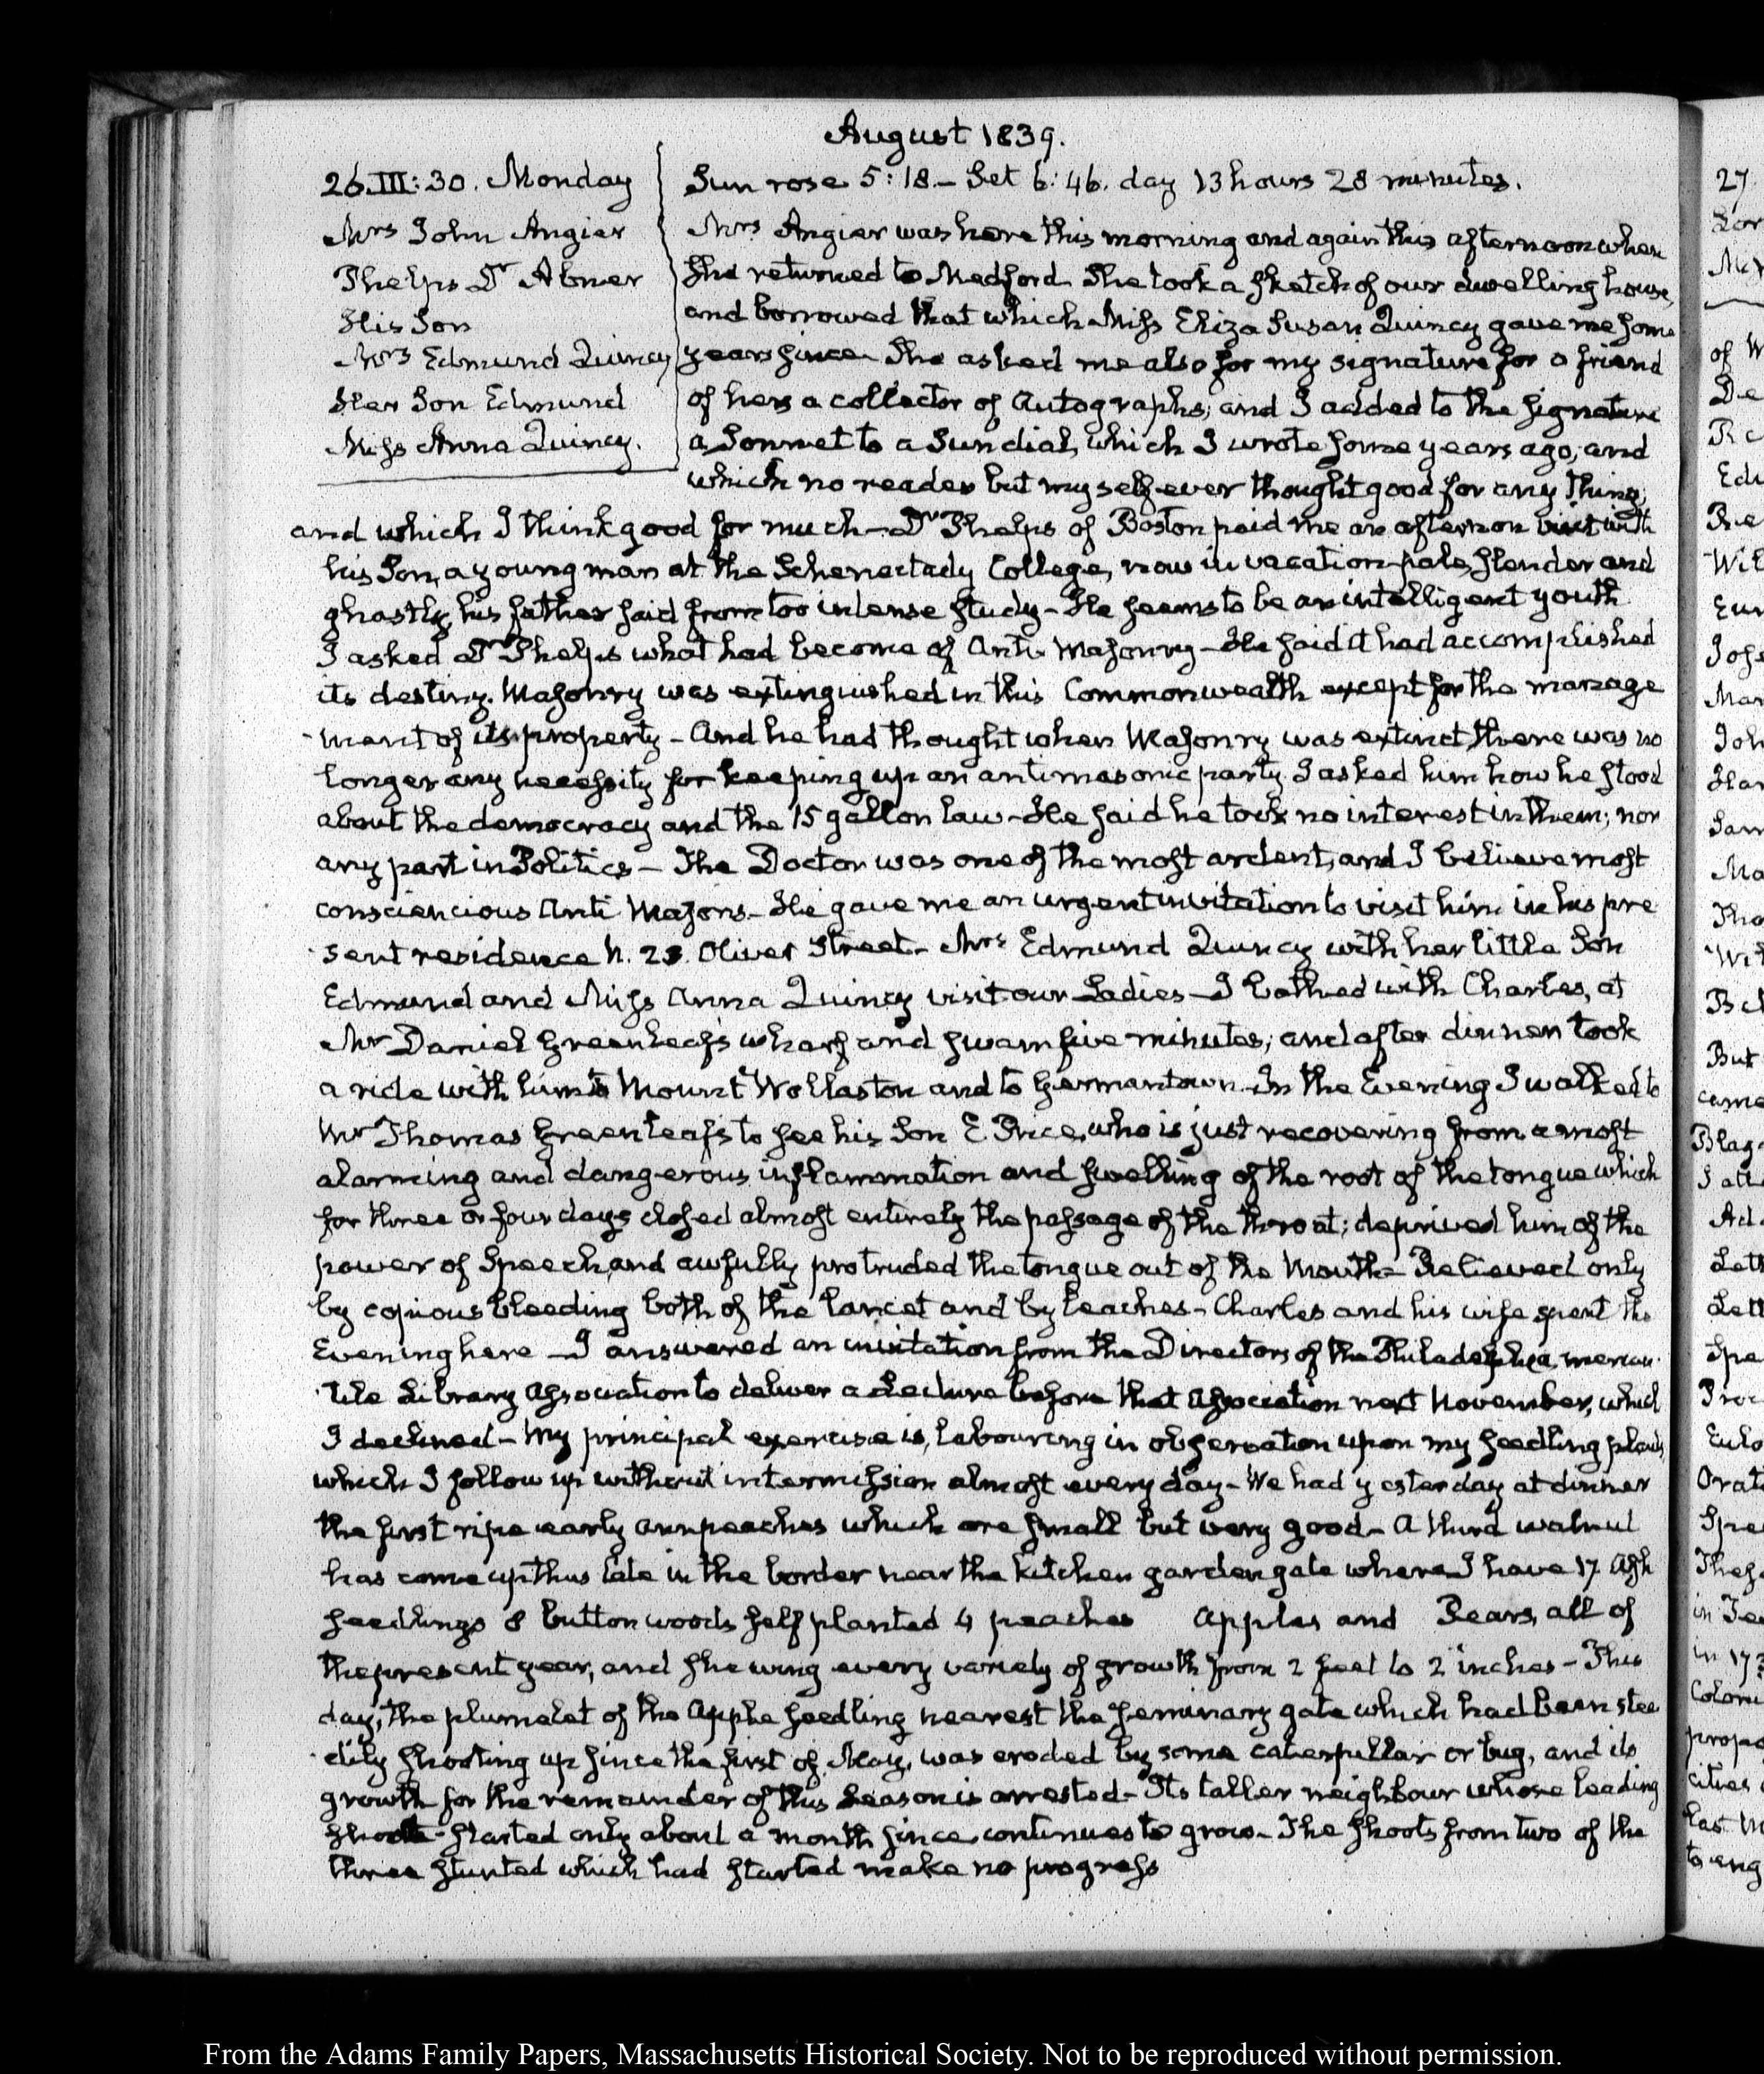 August 1839.
26. III: 30. Monday
Mrs John Angier
Phelps Dr Abner
His Son
Mrs Edmund Quincy
Her Son Edmund
Miss Anna Quincy.
Sun rose 5:18.- Set 6:46. day 13 hours 28 minutes.
Mrs Angier was here this morning and again this afternoon when
she returned to Medford. She took a sketch of our dwelling house,
and borrowed that which Miss Eliza Susan Quincy gave me some
years since. She asked me also for my signature for a friend
of hers a collector of Autographs; and I added to the signature
a Sonnet to a Sun dial, which I wrote some years ago, and
which no reader but myself ever thought good for any thing,
and which I think good for much - Dr Phelps of Boston paid me an afternoon visit with
his Son, a young man at the Schenectady College, now in vacation - pale, slender and
ghastly, his father said from too intense study - He seems to be an intelligent youth
I asked Dr Phelps what had become of Anti-Masonry - He said it had accomplished
its destiny. Masonry was extinguished in this Commonwealth except for the manage
-ment of its property - And he had thought when Masonry was extinct, there was no
longer any necessity for keeping up an antimasonic party. I asked him how he stood
about the democracy and the 15 gallon law - He said he took no interest in them; nor
any part in Politics - The Doctor was one of the most ardent, and I believe most
consciencious Anti Masons - He gave me an urgent invitation to visit him in his pre
-sent residence N. 23. Oliver Street - Mrs Edmund Quincy with her little Son
Edmund and Miss Anna Quincy visit our Ladies - I bathed with Charles, at
Mr Daniel Greenleaf's wharf and swam five minutes; and after dinner took
a ride with him to Mount Wollaston and to Germantown - In the Evening I walked to
Mr Thomas Greenleaf's to see his Son E Price, who is just recovering from a most
alarming and dangerous inflammation and swelling of the root of the tongue which
for three or four days closed almost entirely the passage of the throat; deprived him of the
power of Speech, and awfully protruded the tongue out of the Mouth - Relieved only
by copious bleeding both of the lancet and by leaches - Charles and his wife spent the
Evening here - I answered an invitation from the Directors of the Philadelphia mercan-
-tile Library Association to deliver a Lecture before that Association next November, which
I declined - My principal exercise is, labouring in observation upon my seedling plants,
which I follow up without intermission almost every day - We had yesterday at dinner
the first ripe early ann peaches which are small but very good - A third walnut
has come up thus late in the border near the Kitchen garden gate where I have 17 Ash
seedlings 8 button woods self planted 4 peaches Apples and Pears, all of
the present year, and shewing every variety of growth from 2 feet to 2 inches - This
day, the plumelet of the Apple seedling nearest the Seminary gate which had been stea
-dily shooting up since the first of May, was eroded by some caterpillar or bug, and its
growth for the remainder of this Season is arrested - Its taller neighbour whose leading
shoot started only about a month since continues to grow - The shoots from two of the
three stunted which had started make no progress
From the Adams Family Papers, Massachusetts Historical Society. Not to be reproduced without permission.